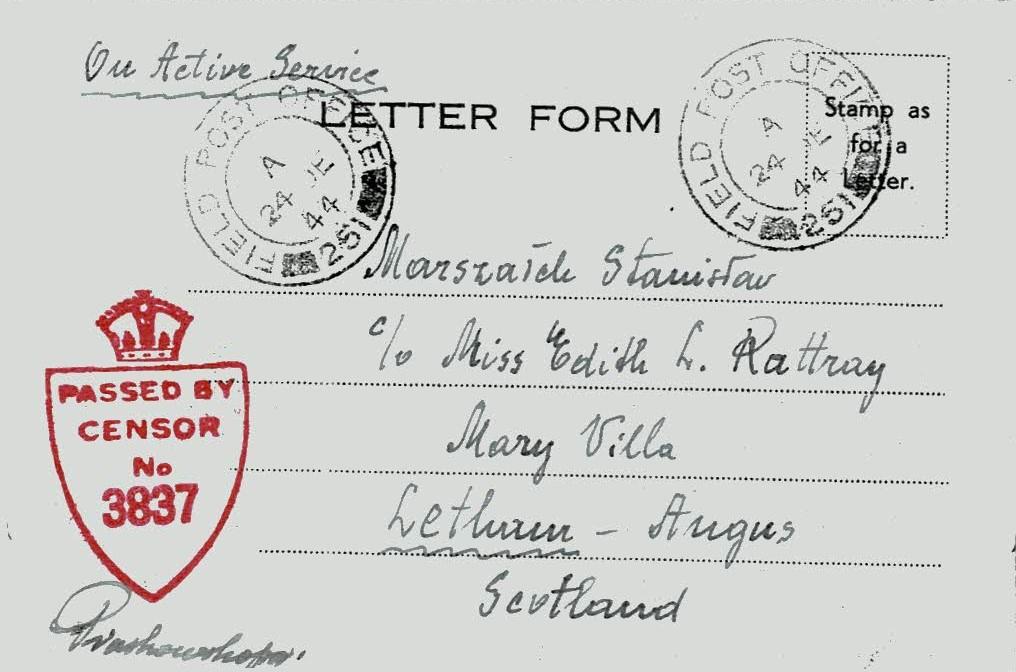 On Active Service
LETTER FORM
FIELD POST OFFICE 251
A
24 JE
44
FIELD POST OFFICE 251
A
24 JE
44
Stamp as
for a
Letter.
Stanisław
c/o Miss Edith L. Rattray
Mary Villa
Letham - Angus
Scotland
PASSED BY
CENSOR
No
3837